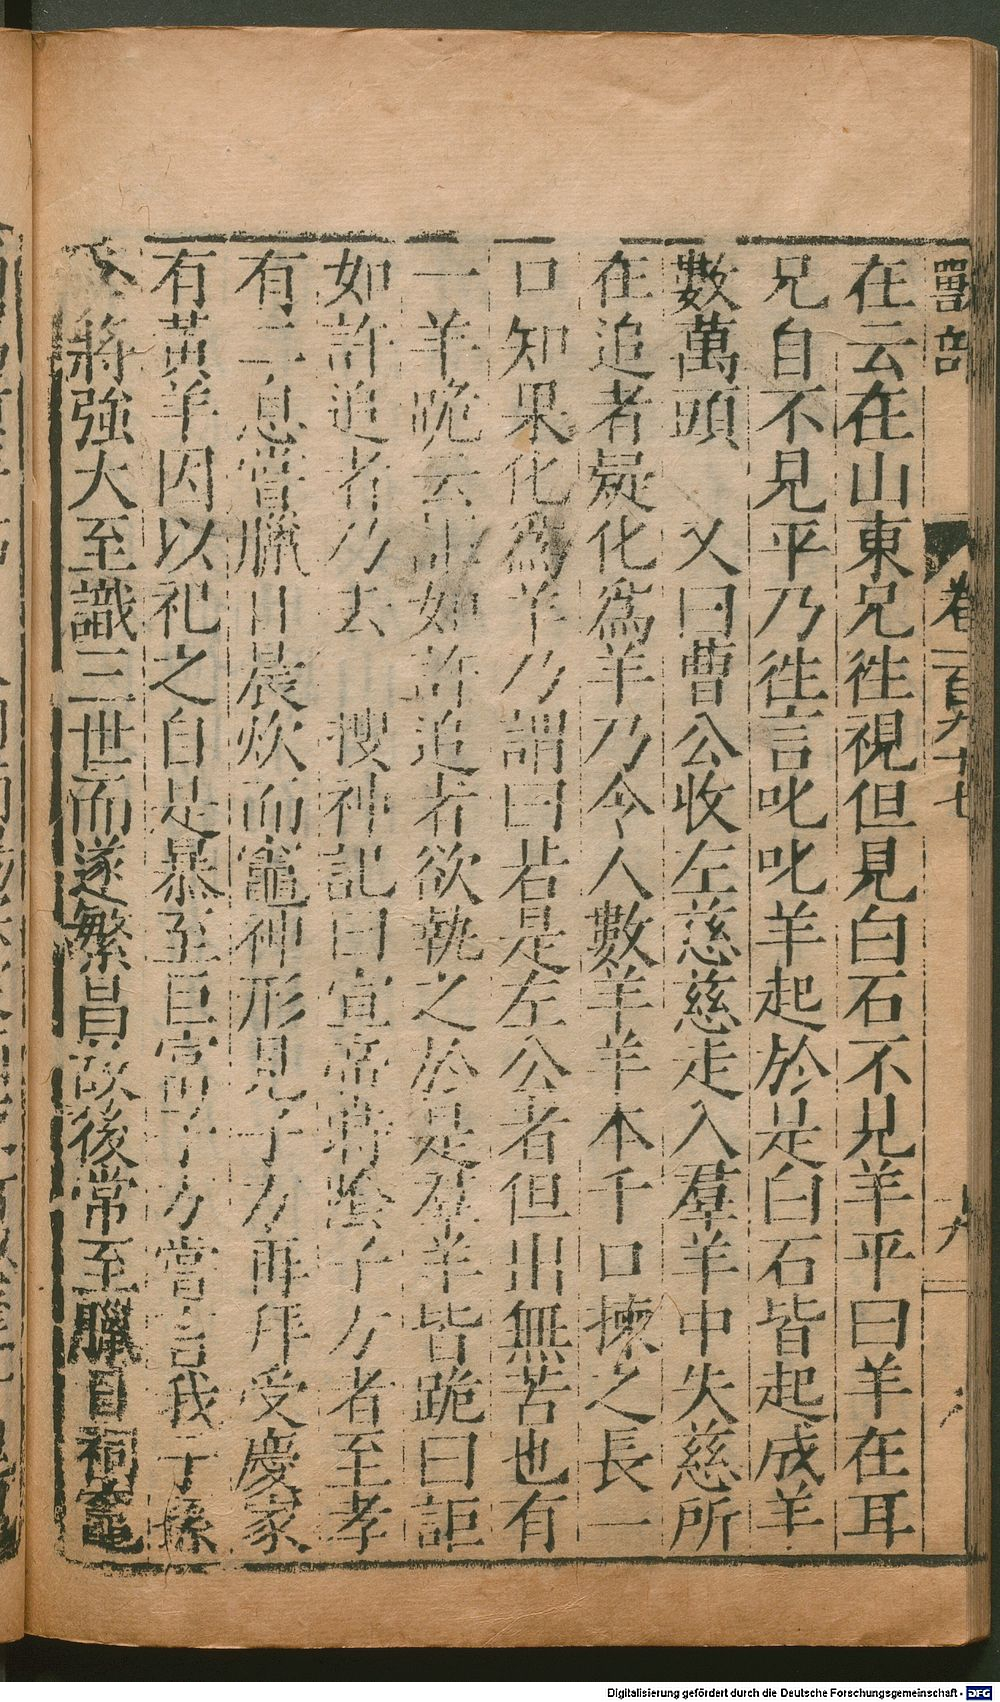 獸部
卷一百九十七
十九
在云在山東兄徃視但見白石不見羊平曰羊在耳
兄自不見平乃徃言叱叱羊起於是白石皆起成羊
數萬頭　又曰曹公收左慈慈走入羣羊中失慈所
在追者疑化爲羊乃令人數羊羊本千口揀之長一
口知果化爲羊乃謂曰若是左公者但出無苦也有
一羊跪云詎如許追者欲執之於是羣羊皆跪曰詎
如許追者乃去　搜神記曰宣帝時陰子方者至孝
有二息嘗臘日晨炊而竈神形見子方再拜受慶家
有黃羊因以祀之自是暴至巨富子方嘗言我子孫
必將強大至識三世而遂繁昌故後常至臘日祠竈
Digitalisierung gefördert durch die Deutsche Forschungsgemeinschaft - DFG